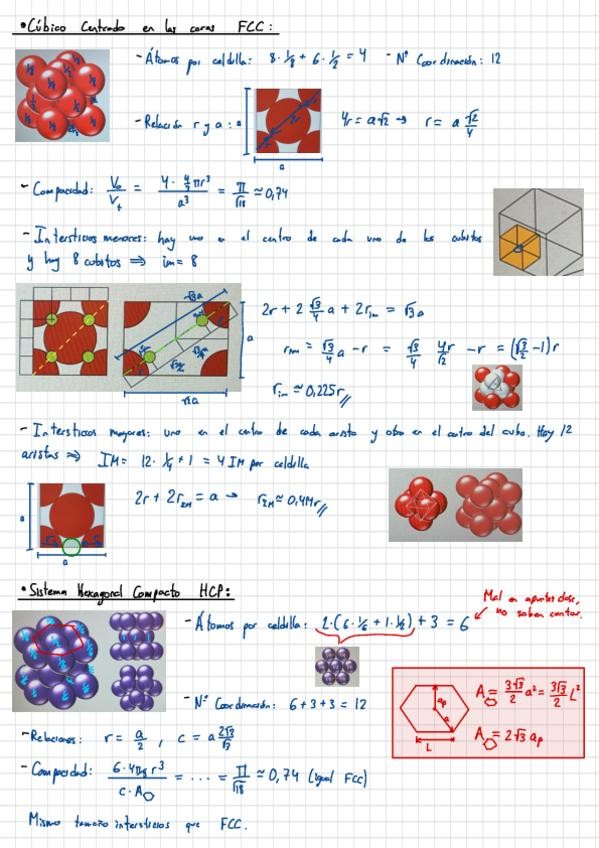 • Cúbico Centrado en las caras FCC:
- Átomos por celdilla: 8·1/8 + 6·1/2 = 4 - Nº Coordinación: 12
- Relación r y a: 4r = a√2 → r = a √2/4
a
a
- Compacidad: Vo/Vt = 4·4/3πr³/a³ = π/√18 ≃ 0,74
- Intersticios menores: hay uno en el centro de cada uno de los cubitos
y hay 8 cubitos ⇒ im = 8
√3a
2r + 2 √3/4 a + 2rim = √3a
rim = √3/4 a - r = √3/4 4r/√2 - r = (√3/√2 - 1) r
√2a
a
rim ≃ 0,225r //
- Intersticios mayores: uno en el centro de cada arista y otro en el centro del cubo. Hay 12
aristas ⇒ IM = 12·1/4 + 1 = 4 IM por celdilla
2r + 2rIM = a → rIM ≃ 0,414r //
a
a
• Sistema Hexagonal Compacto HCP:
Mal en apuntes clase,
no saben contar.
- Átomos por celdilla: 2·(6·1/6 + 1·1/2) + 3 = 6
- Nº Coordinación: 6+3+3 = 12
ap
a
L
A⬡ = 3√3/2 a² = 3√3/2 L²
A⬡ = 2√3 ap
- Relaciones: r = a/2 , c = a 2√2/√3
- Compacidad: 6·4/3π r³/c·A⬡ = ... = π/√18 ≃ 0,74 (igual FCC)
Mismo tamaño intersticios que FCC.